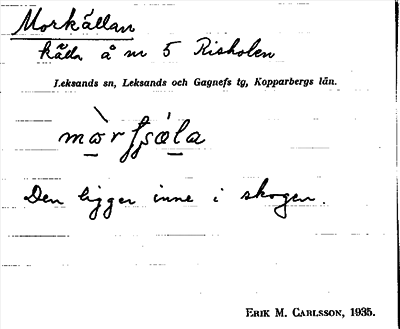 Morkällan
källa å nr 5 Risholen
Leksands sn, Leksands och Gagnefs tg, Kopparbergs län.
Den ligger inne i skogen.
ERIK M. CARLSSON, 1935.